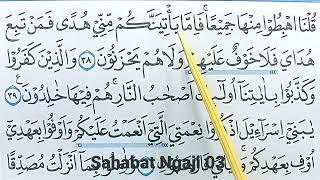 قُلْنَا اهْبِطُوا مِنْهَا جَمِيعًا ۚ فَإِمَّا يَأْتِيَنَّكُم مِّنِّي هُدًى فَمَن تَبِعَ
هُدَايَ فَلَا خَوْفٌ عَلَيْهِمْ وَلَا هُمْ يَحْزَنُونَ ٣٨ وَالَّذِينَ كَفَرُوا
وَكَذَّبُوا بِآيَاتِنَا أُولَٰئِكَ أَصْحَابُ النَّارِ ۖ هُمْ فِيهَا خَالِدُونَ ٣٩
يَا بَنِي إِسْرَائِيلَ اذْكُرُوا نِعْمَتِيَ الَّتِي أَنْعَمْتُ عَلَيْكُمْ وَأَوْفُوا بِعَهْدِي
أُوفِ بِعَهْدِكُمْ بِمَا أَنزَلْتُ مُصَدِّقًا
Sahabat Ngaji 03